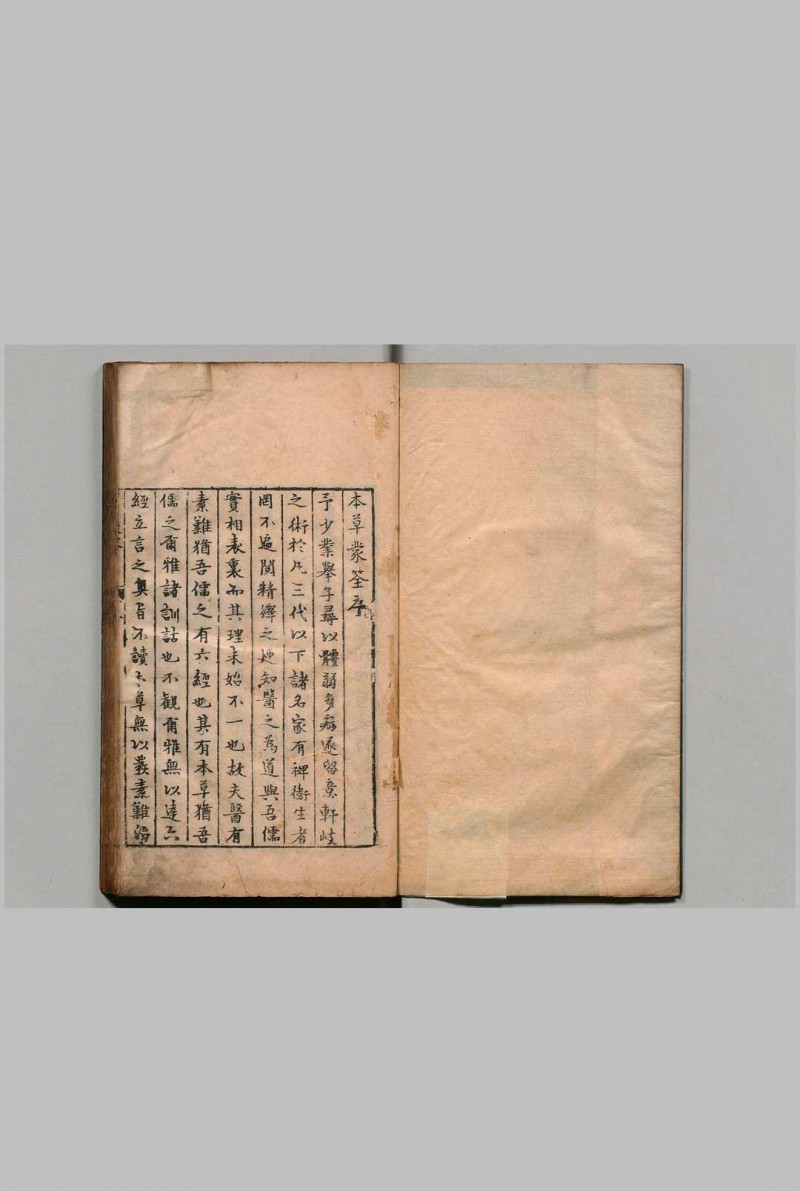 本草蒙筌序
予少業舉子尋以體弱多病遂留意軒岐
之術於凡三代以下諸名家有裨衛生者
罔不遍閱精繹之廼知醫之為道與吾儒
實相表裏而其理未始不一也故夫醫有
素難猶吾儒之有六經也其有本草猶吾
儒之爾雅諸訓詁也不觀爾雅無以達六
經立言之奧旨不讀本草無以發素難治